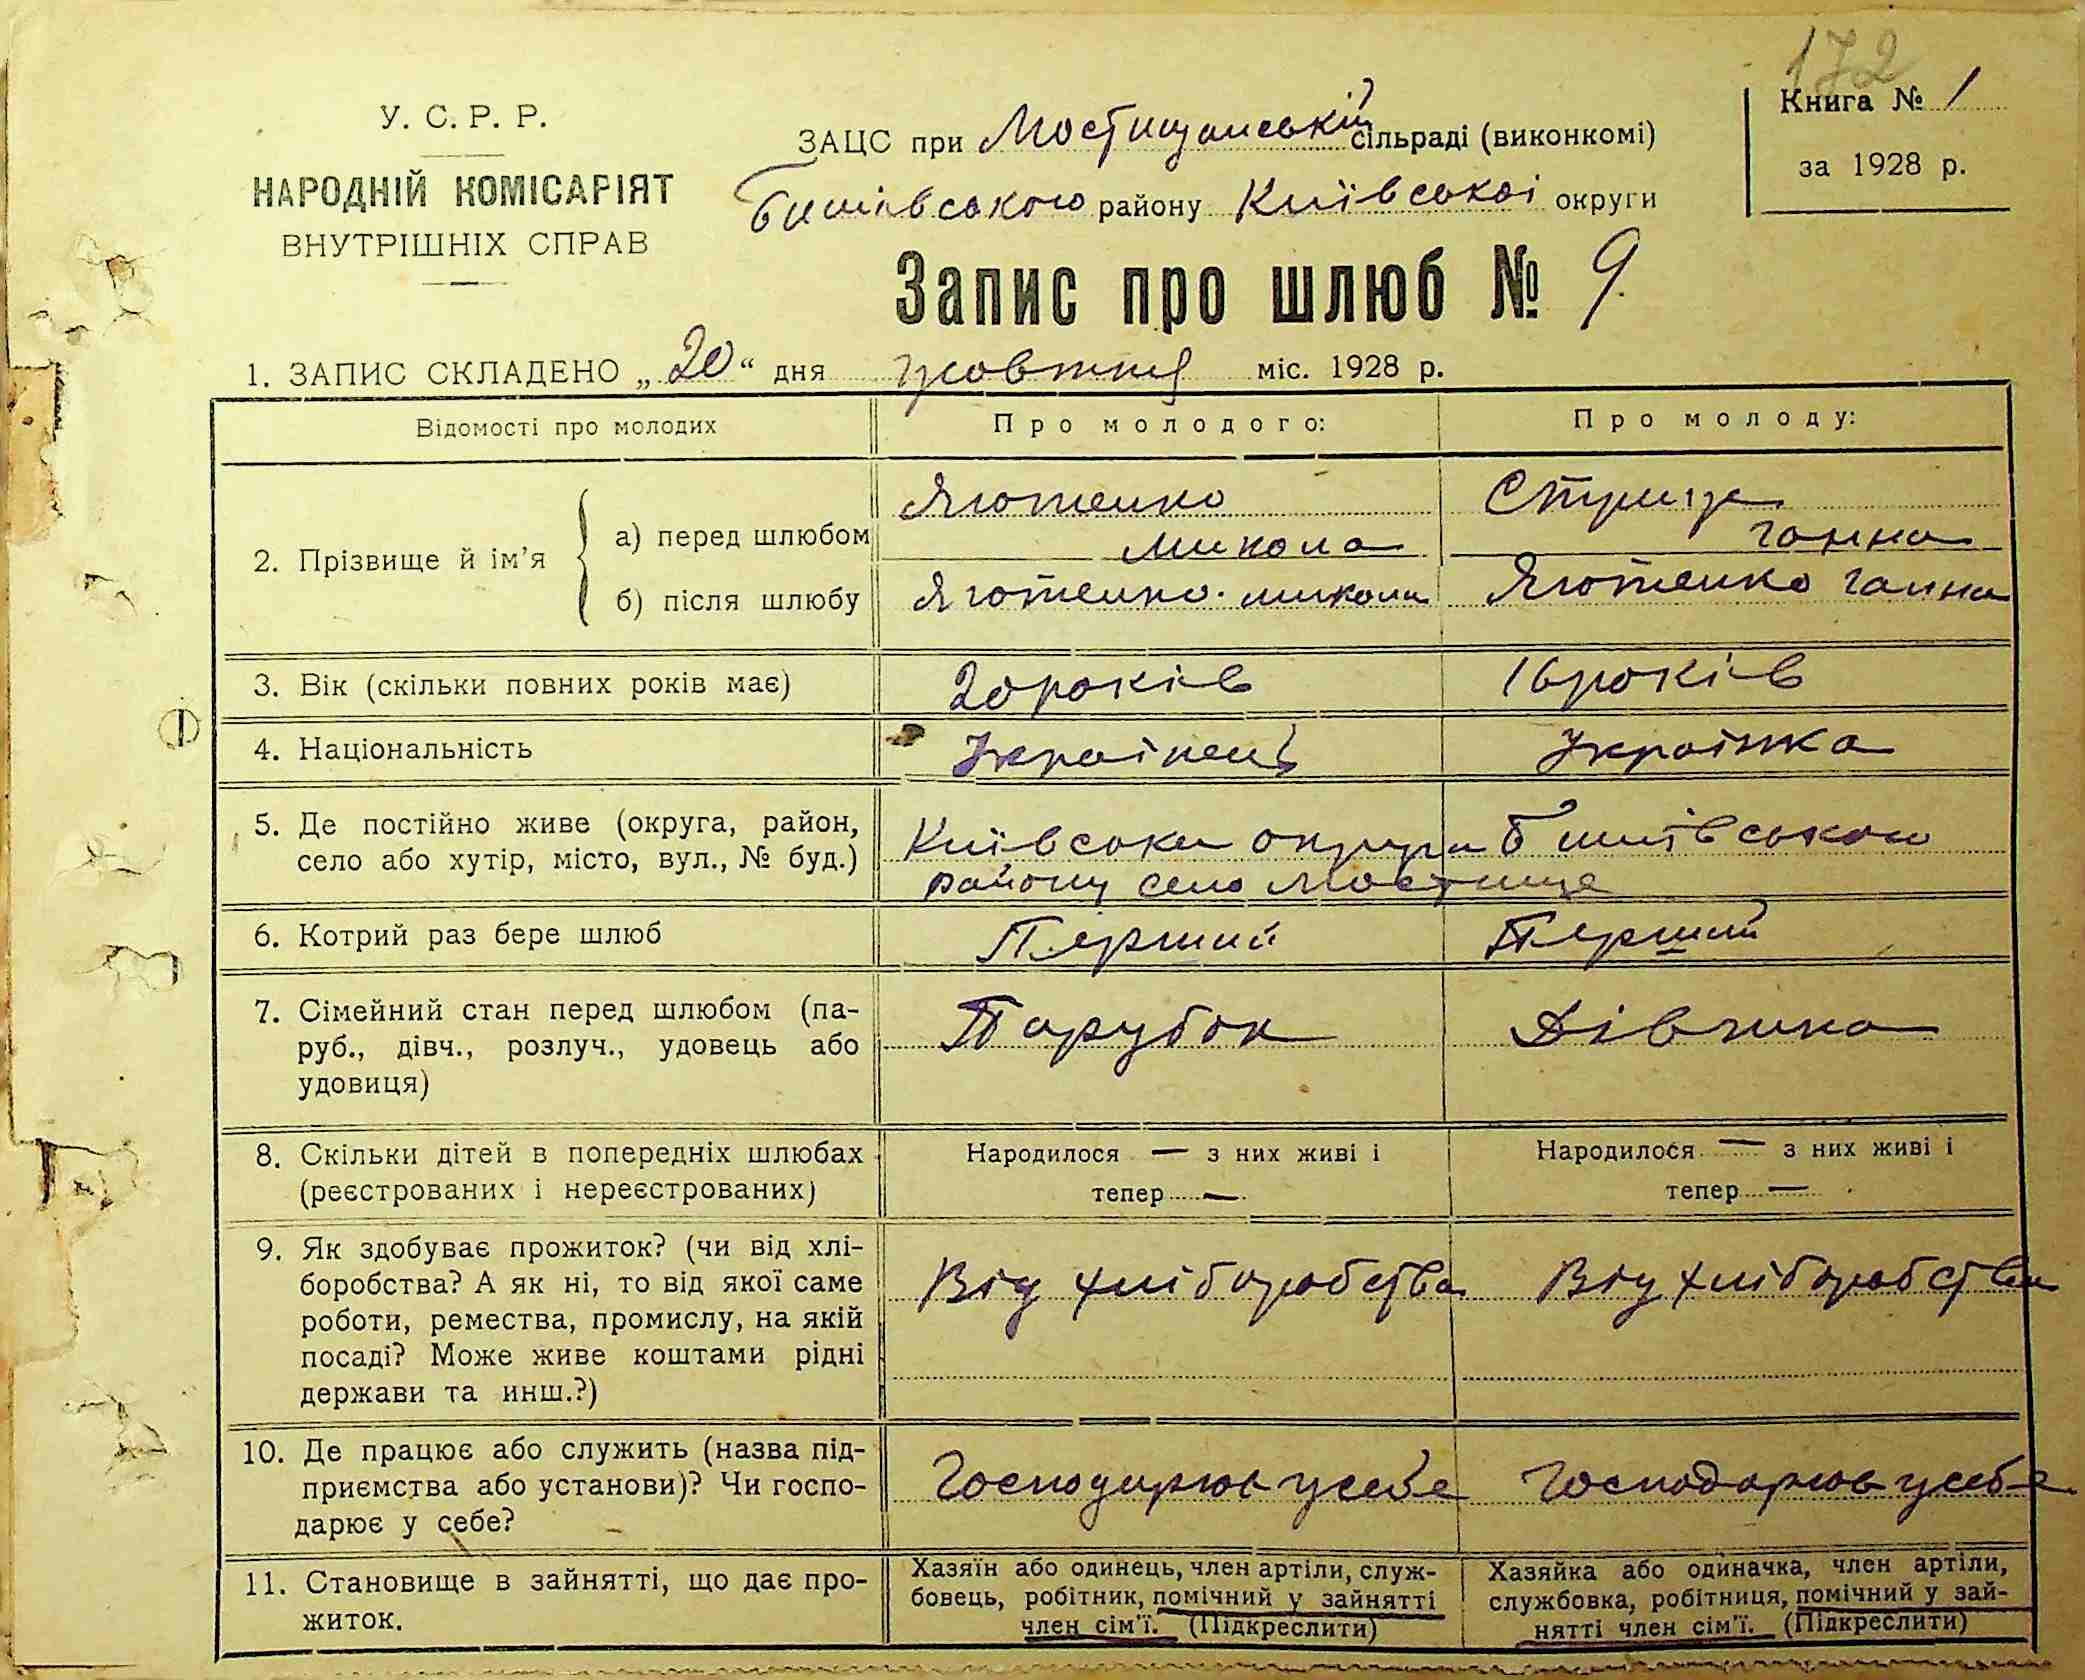 172
У. С. Р. Р.
НАРОДНІЙ КОМІСАРІЯТ
ВНУТРІШНІХ СПРАВ
ЗАЦС при Мостищанській сільраді (виконкомі)
Бишівського району Київської округи
Книга № 1
за 1928 р.
Запис про шлюб № 9
1. ЗАПИС СКЛАДЕНО „20“ дня жовтня міс. 1928 р.
Відомості про молодих
Про молодого:
Про молоду:
2. Прізвище й ім’я
а) перед шлюбом
Яготенко
Микола
Ганна
б) після шлюбу
Яготенко Микола
Яготенко Ганна
3. Вік (скільки повних років має)
20 років
16 років
4. Національність
Українець
Українка
5. Де постійно живе (округа, район,
село або хутір, місто, вул., № буд.)
Київська округа Бишівського
району село Мостище
6. Котрий раз бере шлюб
Перший
Перший
7. Сімейний стан перед шлюбом (па-
руб., дівч., розлуч., удовець або
удовиця)
Парубок
Дівчина
8. Скільки дітей в попередніх шлюбах
(реєстрованих і нереєстрованих)
Народилося — з них живі і
тепер —
Народилося — з них живі і
тепер —
9. Як здобуває прожиток? (чи від хлі-
боробства? А як ні, то від якої саме
роботи, ремества, промислу, на якій
посаді? Може живе коштами рідні
держави та инш.?)
Від хліборобства
Від хліборобства
10. Де працює або служить (назва під-
приємства або установи)? Чи госпо-
дарює у себе?
Господарює у себе
Господарює у себе
11. Становище в зайнятті, що дає про-
житок.
Хазяїн або одинець, член артіли, служ-
бовець, робітник, помічний у зайнятті
член сім’ї. (Підкреслити)
Хазяйка або одиначка, член артіли,
службовка, робітниця, помічний у зай-
нятті член сім’ї. (Підкреслити)